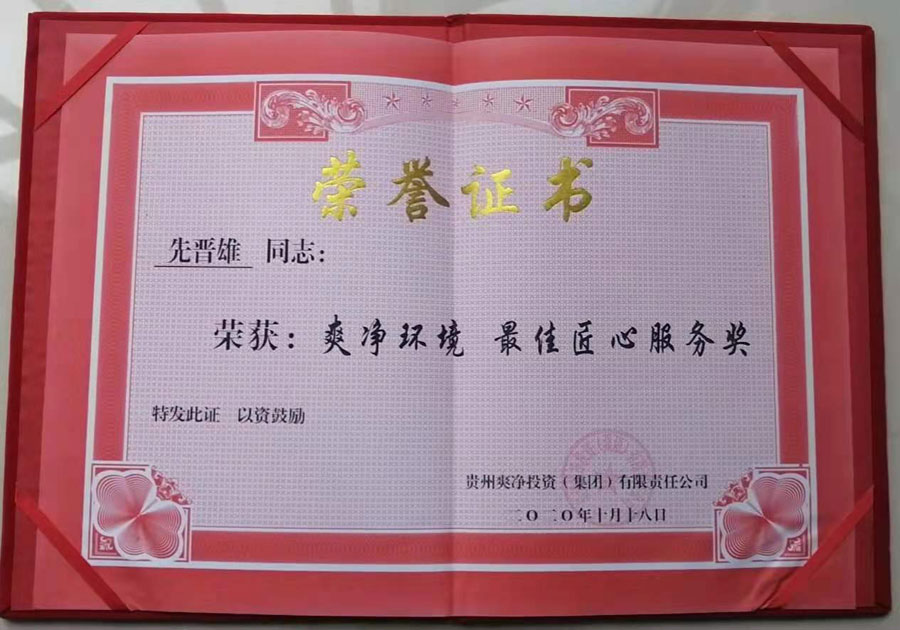 荣誉证书
先晋雄 同志：
荣获：爽净环境 最佳匠心服务奖
特发此证 以资鼓励
贵州爽净投资（集团）有限责任公司
二〇二〇年十月十八日